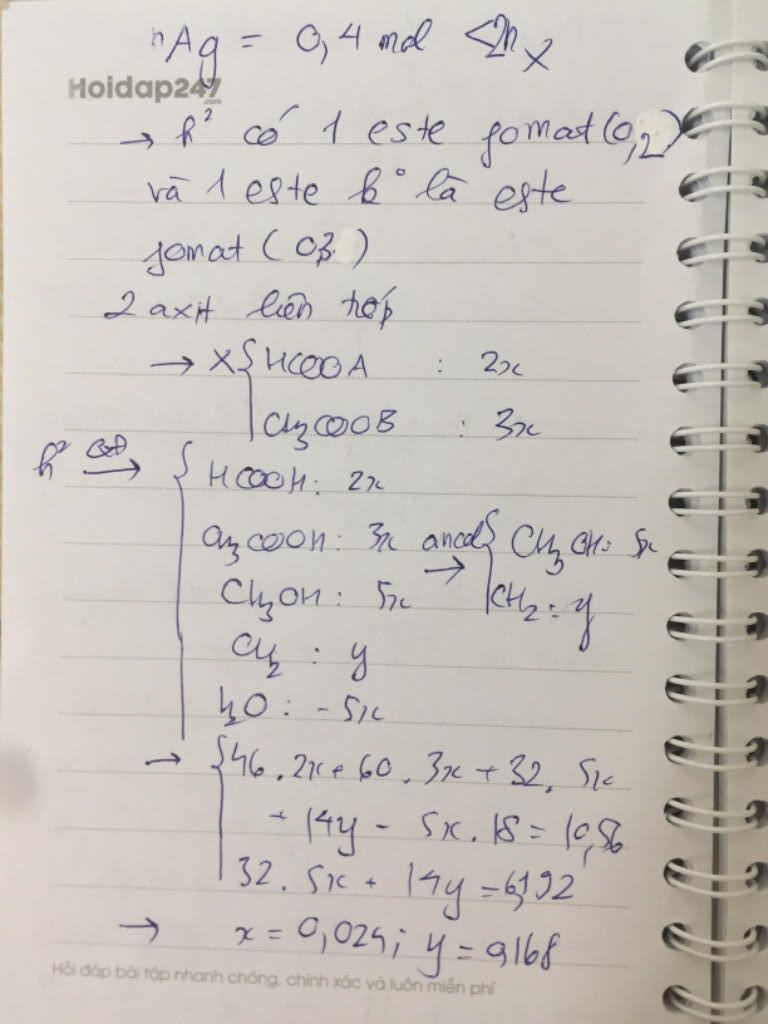 nAg = 0,4 mol < 2n X
Hoidap247
.com
→ h² có 1 este fomat (0,2)
và 1 este k° là este
fomat (0,3)
2 axit liên tiếp
→ X { HCOOA : 2x
CH3COOB : 3x
h² qđ → { HCOOH: 2x
CH3COOH: 3x ancol → { CH3OH: 5x
CH3OH: 5x CH2: y
CH2 : y
H2O : -5x
→ { 46.2x + 60.3x + 32.5x
+ 14y - 5x.18 = 10,56
32.5x + 14y = 6,192
→ x = 0,024; y = 0,168
Hỏi đáp bài tập nhanh chóng, chính xác và luôn miễn phí